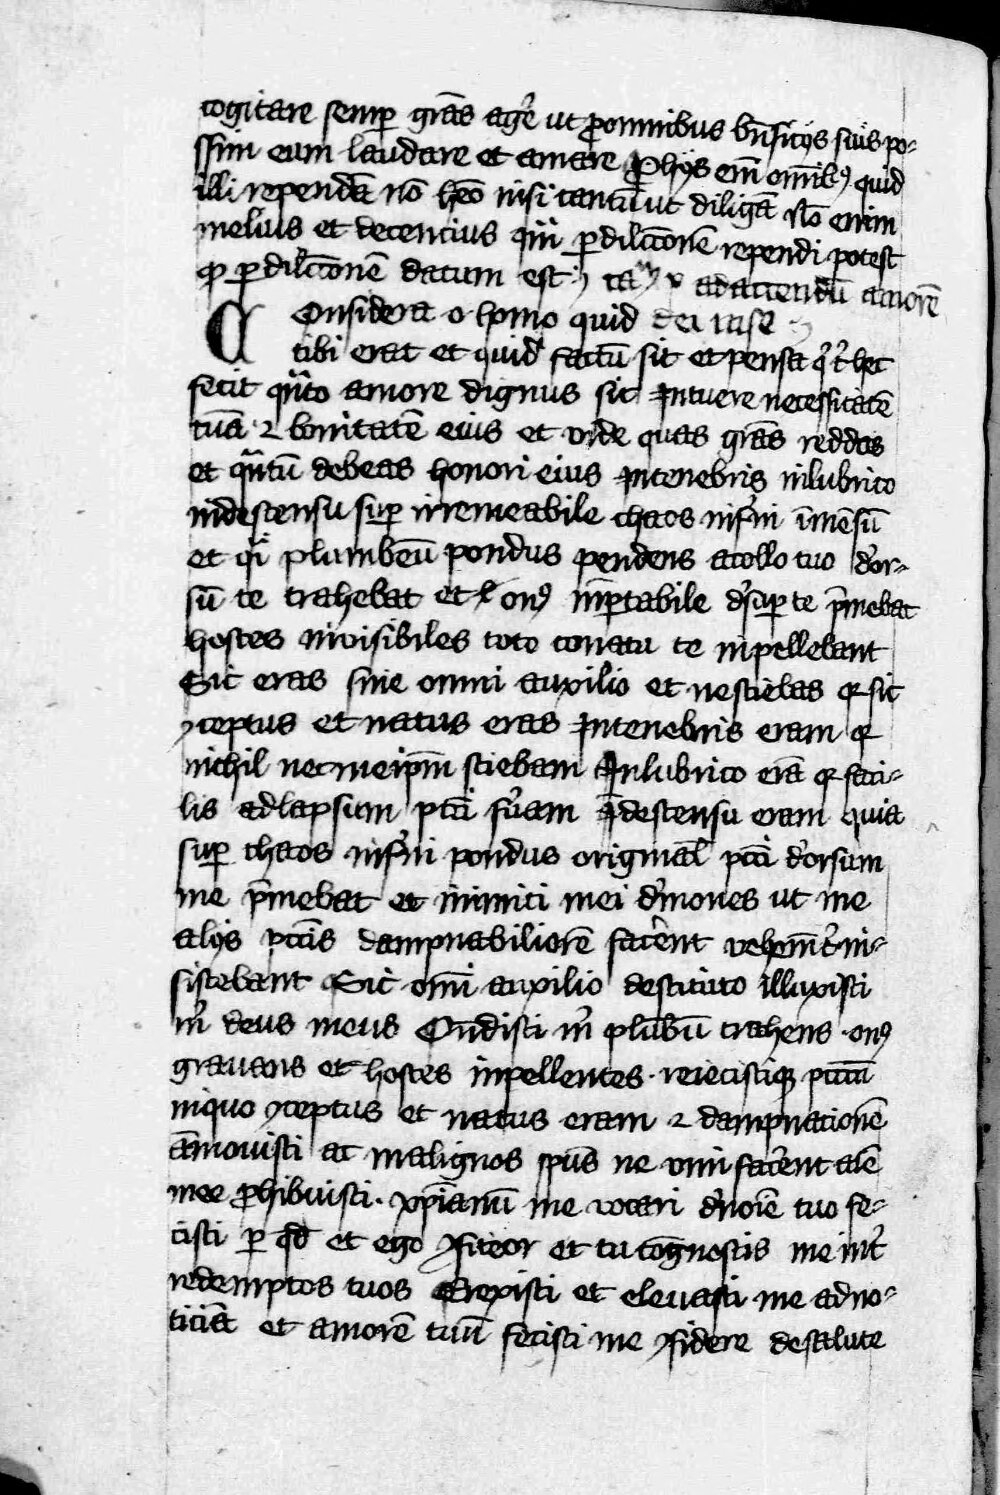 cogitare semꝑ gr̄as agẽ ut ꝓ omnibus bñficijs suis po-
ssim eum laudare et amare Pro hijs em̄ om̄ibꝰ quid
illi rependā nō heō nisi tantū ut diligā Nō enim
melius et decencius qm̄ ꝑ dilcc̄onē rependi potest
qꝫ ꝑ dilcc̄onē datum est ad attendū amorē
Considera o homo quid dei
tibi erat et quid factū sit et pensa q̇ t̾ hec
fecit qn̄to amore dignus sit Intuere necessitatē
tuā ⁊ bonitatē eius et vide quas gr̄as reddas
et qn̄tū debeas honori eius In tenebris in lubrico
in descensu suꝑ irremeabile chaos inf̾ni īmēsū
et qͥ plumbeū pondus pendens a collo tuo d̾or-
sū te trahebat et ł onꝰ inp̄tabile d̾suꝑ te p̄mebat
hostes invisibiles toto conatu te inpellebant
Sic eras sine omni auxilio et nesciebas qꝛ sic
ꝯceptus et natus eras In tenebris eram qꝛ
nichil nec meip̄m sciebam In lubrico erā qꝛ faci-
lis ad lapsum pcc̄i fu̾am In descensu eram quia
suꝑ chaos inf̾ni pondus originał pcc̄i d̾orsum
me p̄mebat et inimici mei d̾mones ut me
alijs pcc̄is dampnabiliorē fac̾ent vehem̄t̾ in-
sistebant Sic om̄i auxilio destituto illuxisti
m̾ deus meus On̄disti m̾ plūbū trahens onꝰ
gravans et hostes inpellentes reiecistiqꝫ pccm̄
in quo ꝯceptus et natus eram ⁊ dampnacionē
āmovisti ac malignos spūs ne vim fac̾ent aīe
mee ꝓhibuisti xp̄ianū me vocari d̾ noīe tuo fe-
cisti ꝑ qd̄ et ego ꝯfiteor et tu cōgnoscis me int̾
redemptos tuos Erexisti et elevasti me ad no-
ticiā et amorē tuū fecisti me ꝯfidere de salute